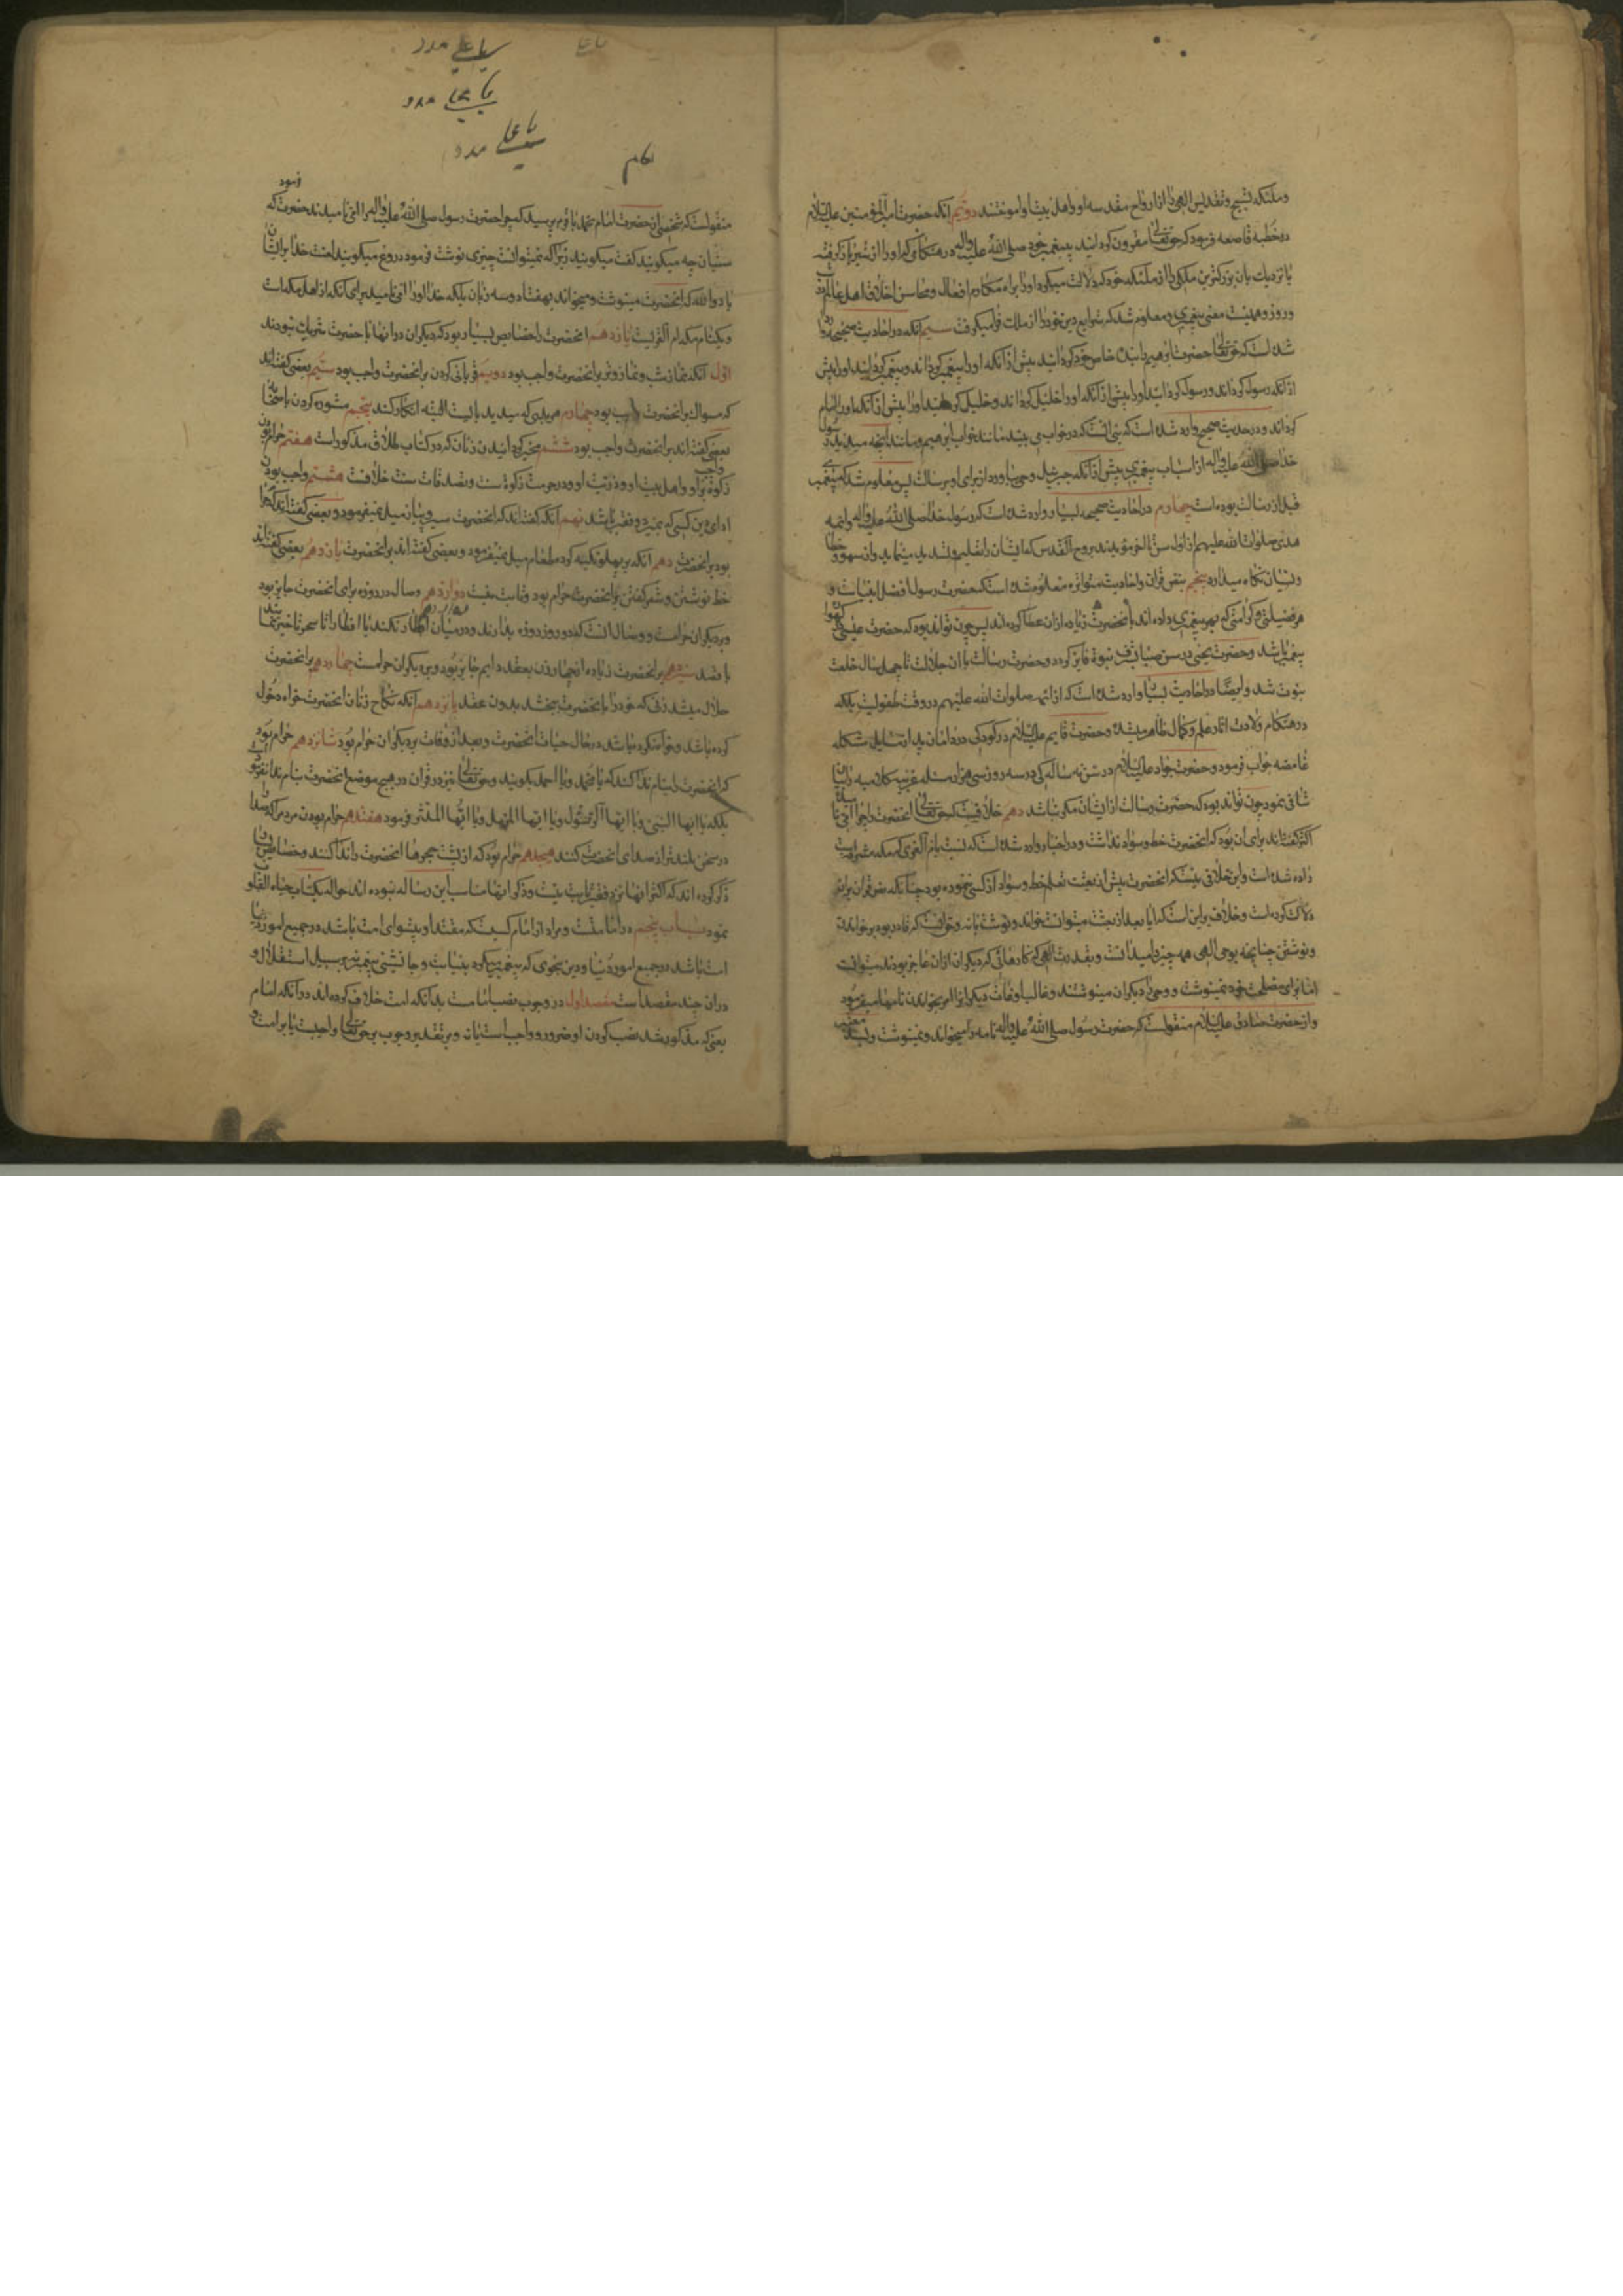 وملئکه تسبیح وتقدیس الهی را از ارواح مقدسه او واهل بیت او اموختند دویم انکه حضرت امیرالمؤمنین علیه السلام
در خطبه قاصعه فرمود که حق تعالی مقرون کردانید پیغمبر خود صلی الله علیه واله در هنکامی که او را از شیر باز کرفته
بزرکترین ملکی را از ملئکه خود که دلالت میکرد او را براه مکارم افعال ومحاسن اخلاق اهل عالم در شب
وروز وهمینست معنی پیغمبری ومعلوم شد که شرایع دین خود را از ملک فرا میکرفت سیم انکه در احادیث صحیحه وارد
شده است که حق تعالی حضرت ابراهیم را بنده خاص خود کردانید پیش از انکه او را پیغمبر کرداند وپیغمبر کردانید او را پیش
از انکه رسول کرداند ورسول کردانید او را پیش از انکه او را خلیل کرداند وخلیل کردانید او را پیش از انکه او را امام
کرداند ودر حدیث صحیح وارد شده است که نبی انست که در خواب می بیند مانند خواب ابراهیم ومانند انچه میدید رسول
خدا صلی الله علیه واله از اسباب پیغمبری پیش از انکه جبرئیل وحی بیاورد از برای او برسالت پس معلوم شد که پیغمبر
قبل از رسالت بوده است چهارم در احادیث صحیحه بسیار وارد شده است که رسول خدا صلی الله علیه واله وائمه
هدی صلوات الله علیهم از اول سن تا اخر مؤیدند بروح القدس که ایشان را تعلیم وتسدید مینماید واز سهو وخطا
ونسیان نکاه میدارد پنجم بنص قران واحادیث متواتره معلوم شده است که حضرت رسول افضل انبیاست و
هر فضیلتی وکرامتی که بهر پیغمبری داده اند بانحضرت زیاده از ان عطا کرده اند پس چون تواند بود که حضرت عیسی در کهواره
پیغمبر باشد وحضرت یحیی در سن صبا بشرف نبوت فایز کردد وحضرت رسالت با ان جلالت تا چهل سال خلعت
نبوت شد وایضا در احادیث بسیار وارد شده است که از ائمه صلوات الله علیهم در وقت طفولیت بلکه
در هنکام ولادت اثار علم وکمال ظاهر میشد وحضرت قایم علیه السلام در کودکی در دامان پدر از مسایل مشکله
غامضه جواب فرمود وحضرت جواد علیه السلام در سن نه سالکی در سه روز سی هزار مسئله غریبه کلامیه را بیان
شافی نمود چون تواند بود که حضرت رسالت از ایشان کمتر باشد دهم خلافیست که حق تعالی انحضرت را چرا امی نامیده
اکثر کفته اند برای ان بود که انحضرت خط وسواد نداشت ودر اخبار وارد شده است که نسبت بام القری که مکه مشرفه است
داده شده است واین خلافی نیست که انحضرت پیش از بعثت تعلم خط وسواد از کسی ننموده بود چنانکه نص قران بر ان
دلالت کرده است وخلاف بر این است که ایا بعد از بعثت میتوانست خواند ونوشت یا نه وحق انست که قادر بود بر خواندن
ونوشتن چنانچه بوحی الهی همه چیز را میدانست وبقدرت الهی که کارهائی که دیکران از ان عاجز بودند میتوانست
اما برای مصلحت خود نمینوشت ووحی را دیکران مینوشتند وغالب اوقات دیکران را امر بخواندن نامها میفرمود
واز حضرت صادق علیه السلام منقولست که حضرت رسول صلی الله علیه واله نامه را میخواند ونمینوشت
یا علی
یا علی مدد
یا علی مدد
یا علی مدد
منقولست که شخصی از حضرت امام محمد باقر پرسید که چرا حضرت رسول صلی الله علیه واله را امی نامیدند حضرت فرمود که
سنیان چه میکویند کفت میکویند زیرا که نمیتوانست چیزی نوشت فرمود دروغ میکویند لعنت خدا بر ایشان
باد والله که انحضرت مینوشت ومیخواند بهفتاد وسه زبان بلکه خدا او را امی نامید برای انکه از اهل مکه است
ویک نام مکه ام القریست یازدهم انحضرت را خصایص بسیار بود که دیکران در انها با حضرت شریک نبودند
اول انکه نماز شب ونماز وتر بر انحضرت واجب بود دویم قربانی کردن بر انحضرت واجب بود سیم بعضی کفته اند
که مسواک بر انحضرت واجب بود چهارم هر بدی که میدید بایست البته انکار کند پنجم مشوره کردن با صحابه
بعضی کفته اند بر انحضرت واجب بود ششم مخیر کردانیدن زنان که در کتاب طلاق مذکور است هفتم حرام بودن
زکوة واجب بر او واهل بیت او وذریت او ودر حرمت زکوة سنت وتصدقات سنت خلافست هشتم واجب بودن
ادای دین کسی که بمیرد وفقیر باشد نهم انکه کفته اند که انحضرت سیر وپیاز میل نمیفرمود وبعضی کفته اند که حرام
بود بر انحضرت دهم انکه بر پهلو تکیه کرده طعام میل نمیفرمود وبعضی کفته اند بر انحضرت یازدهم بعضی کفته اند
خط نوشتن وشعر کفتن بر انحضرت حرام بود وثابت نیست دوازدهم وصال در روزه برای انحضرت جایز بود
وبر دیکران حرامست ووصال انست که دو روز روزه بدارند ودر میان افطار نکنند یا افطار را تا سحر تاخیر نمایند
با قصد سیزدهم بر انحضرت زیاده از چهار زن بعقد دایم جایز بود وبر دیکران حرامست چهاردهم بر انحضرت
حلال میشد زنی که خود را بانحضرت ببخشد بدون عقد پانزدهم انکه نکاح زنان انحضرت خواه دخول
کرده باشد وخواه نکرده باشد در حال حیات انحضرت وبعد از وفات بر دیکران حرام بود شانزدهم حرام بود
که انحضرت را بنام ندا کنند که یا محمد ویا احمد بکویند وحق تعالی نیز در قران در هیچ موضع انحضرت را بنام ندا نفرموده
بلکه یا ایها النبی ویا ایها الرسول ویا ایها المزمل ویا ایها المدثر فرموده هفتدهم حرام بودن مردم را که صدا
در سخن بلندتر از صدای انحضرت کنند هیجدهم حرام بود که از پشت حجرها انحضرت را ندا کنند وخصایص
ذکر کرده اند که اکثر انها نزد فقیر ثابت نیست وذکر انها مناسب این رساله نبوده اند حواله بکتاب حیاة القلوب
نمود باب پنجم در امامتست ومراد از امام کسیست که مقتدا وپیشوای امت باشد در جمیع امور
امت باشد در جمیع امور دنیا ودین بنحوی که پیغمبر میکرد بنیابت وجانشینی پیغمبر نه بر سبیل استقلال و
در ان چند مقصد است مقصد اول در وجوب نصب امامست بدانکه امت خلاف کرده اند در انکه امام
بمعنی که مذکور شد نصب کردن او ضرور وواجب است یا نه وبر تقدیر وجوب بر حق تعالی واجبست یا بر امت